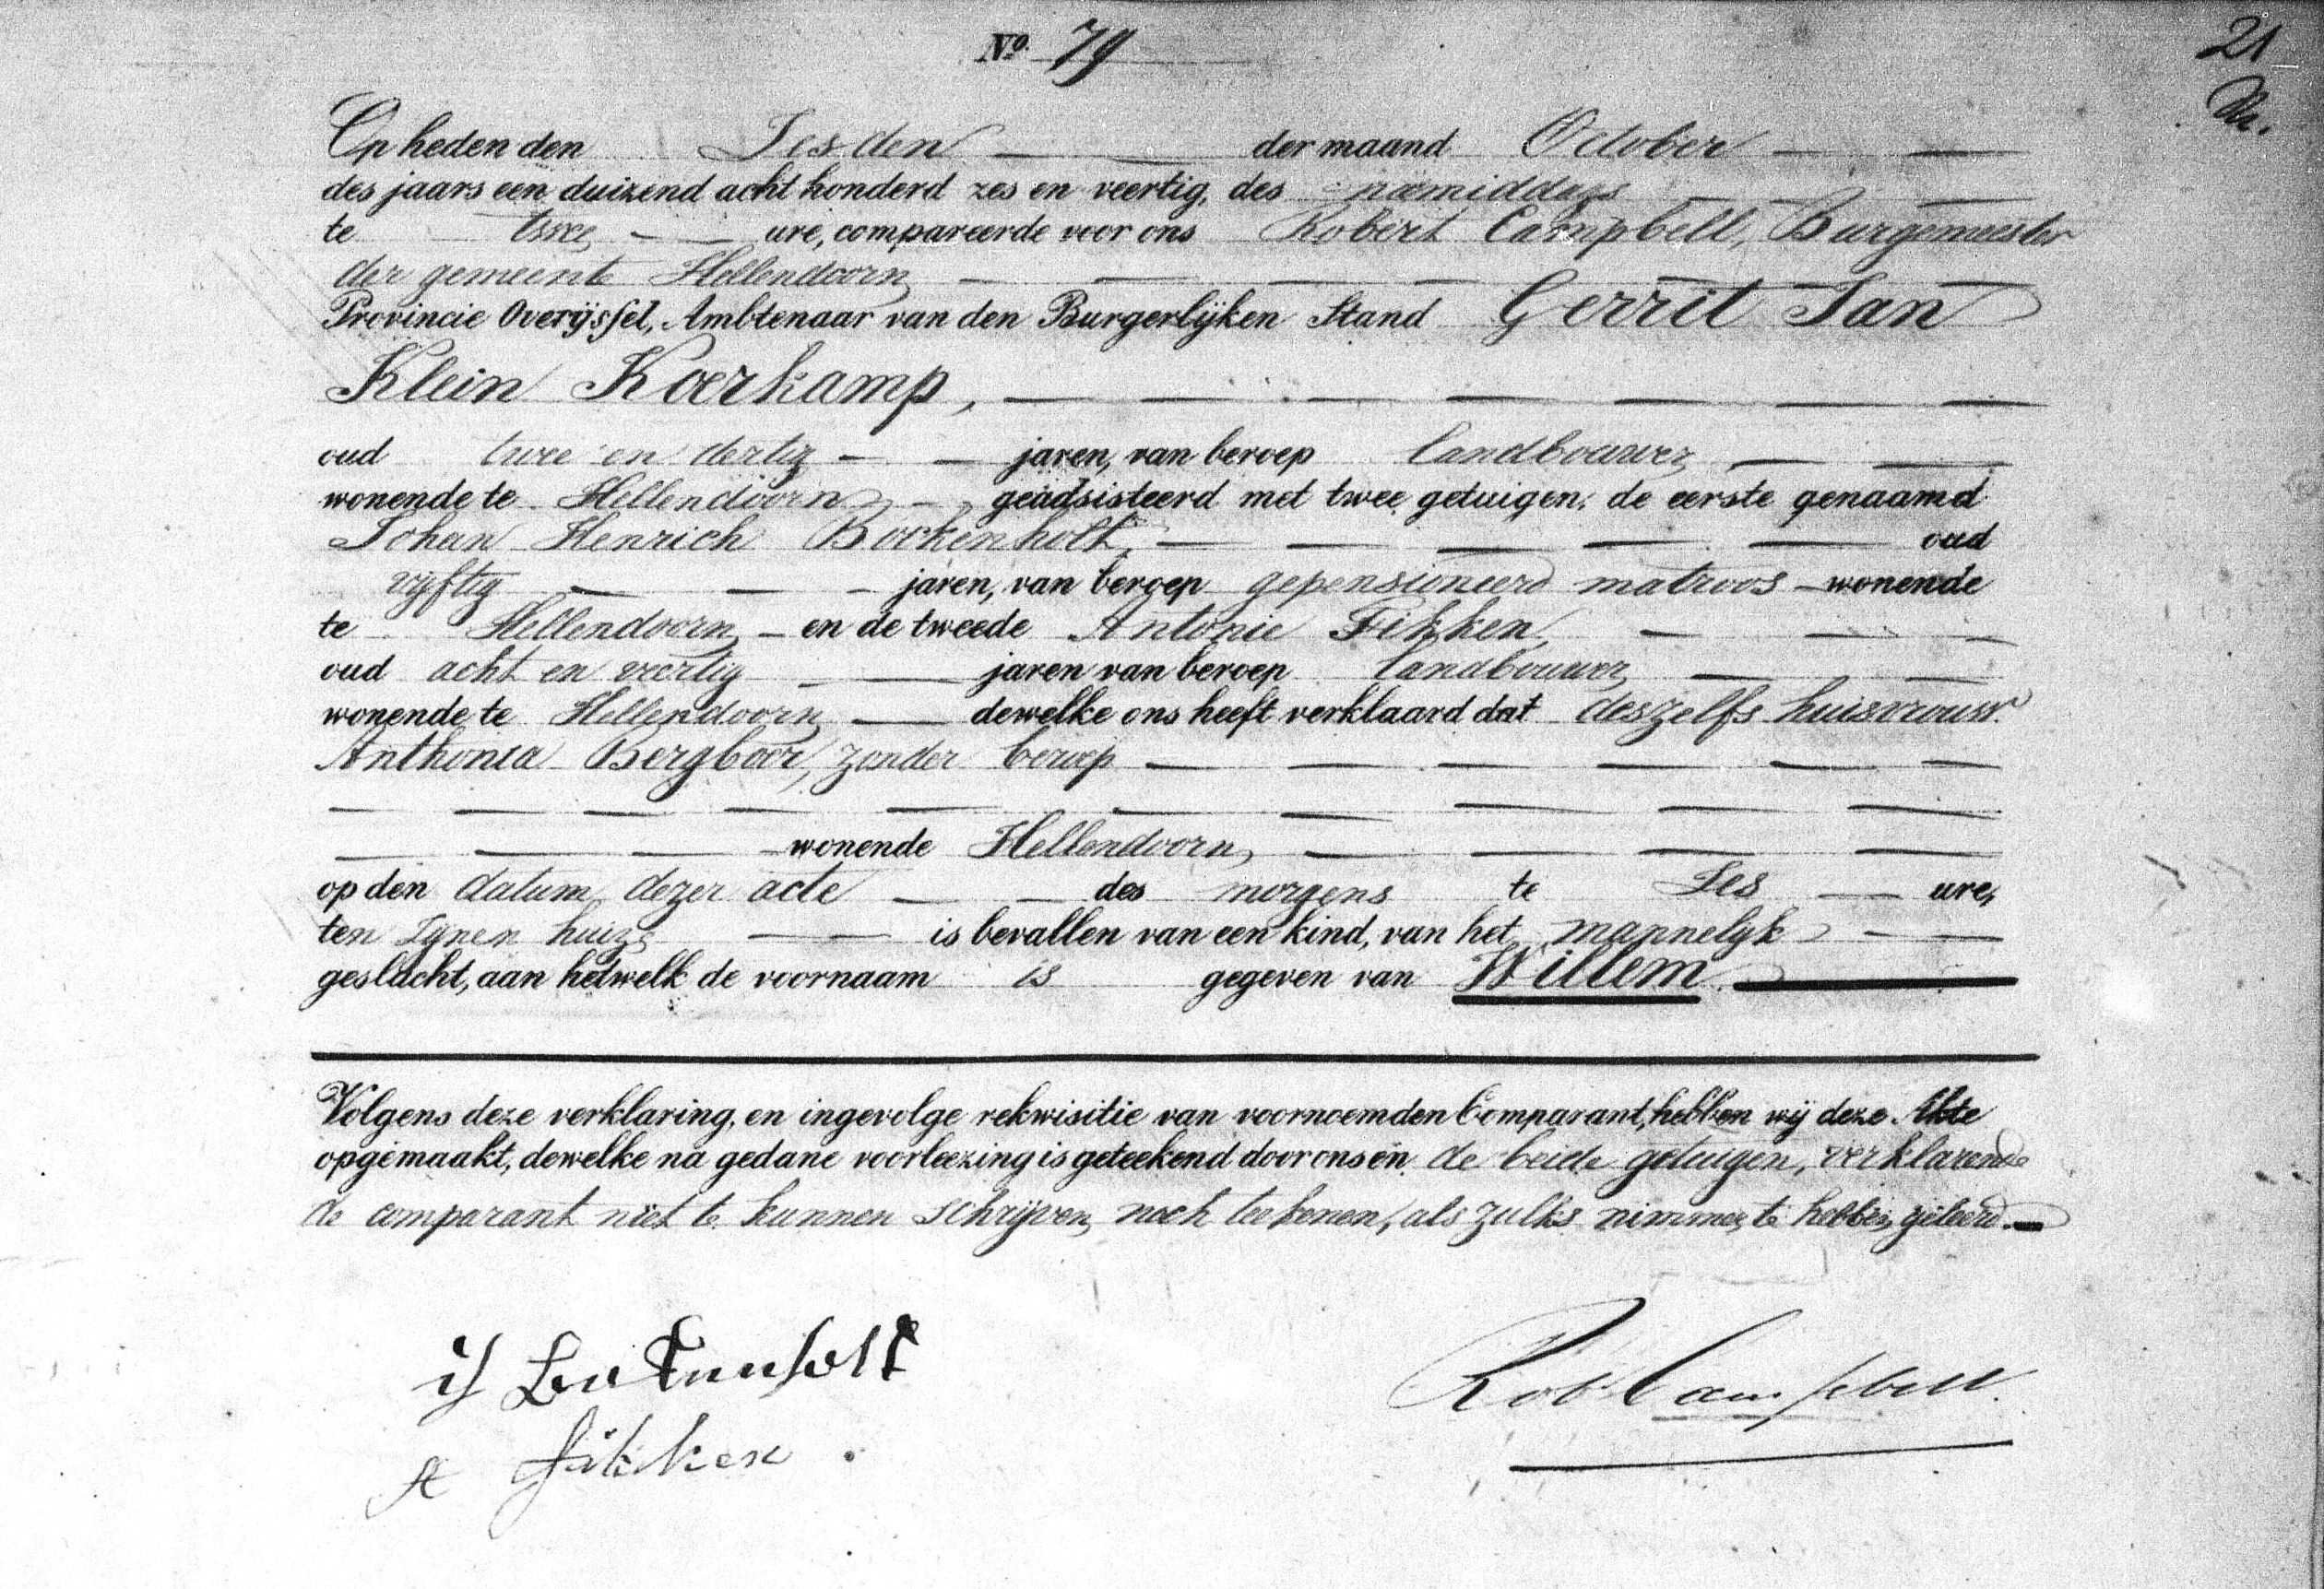 No. 79
21
Op heden den Zesden der maand October
des jaars een duizend acht honderd zes en veertig, des namiddags
te twee ure, compareerde voor ons Robert Campbell, Burgemeester
der gemeente Hellendoorn
Provincie Overijssel, Ambtenaar van den Burgerlijken Stand Gerrit Jan
Klein Koerkamp,
oud twee en dertig jaren, van beroep landbouwer,
wonende te Hellendoorn, geadsisteerd met twee getuigen, de eerste genaamd
Johan Henrich Bockenholt, oud
vijftig jaren, van beroep gepensioneerd matroos wonende
te Hellendoorn, en de tweede Antonie Fikken,
oud acht en veertig jaren van beroep landbouwer,
wonende te Hellendoorn, dewelke ons heeft verklaard dat deszelfs huisvrouw
Anthonia Bergboer, zonder beroep
wonende Hellendoorn,
op den datum dezer acte des morgens te Zes ure,
ten zijnen huize is bevallen van een kind, van het mannelijk
geslacht, aan hetwelk de voornaam is gegeven van Willem
Volgens deze verklaring, en ingevolge rekwisitie van voornoemden Comparant, hebben wij deze Akte
opgemaakt, dewelke na gedane voorleezing is geteekend door ons en de beide getuigen, verklarende
de comparant niet te kunnen schrijven, noch teekenen, als zulks nimmer te hebben geleerd.
A Fikken.
Rob Campbell.